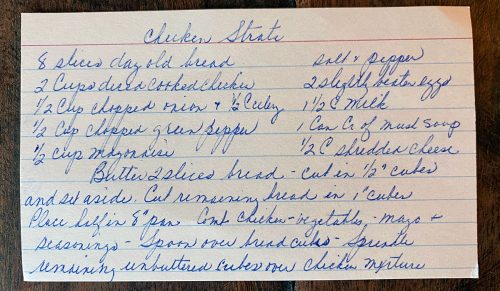 Chicken Strata
8 slices day old bread
2 Cups diced cooked chicken
1/2 Cup chopped onion & 1/2 Celery
1/2 Cup chopped green pepper
1/2 cup mayonaise
salt & pepper
2 slightly beaten eggs
1 1/2 C Milk
1 Can Cr of Mush Soup
1/2 C shredded cheese
Butter 2 slices bread - cut in 1/2" cubes
and set aside. Cut remaining bread in 1" cubes
Place half in 8" pan Comb chicken - vegetables - mayo &
seasonings - Spoon over bread cubes - Sprinkle
remaining unbuttered cubes over chicken mixture